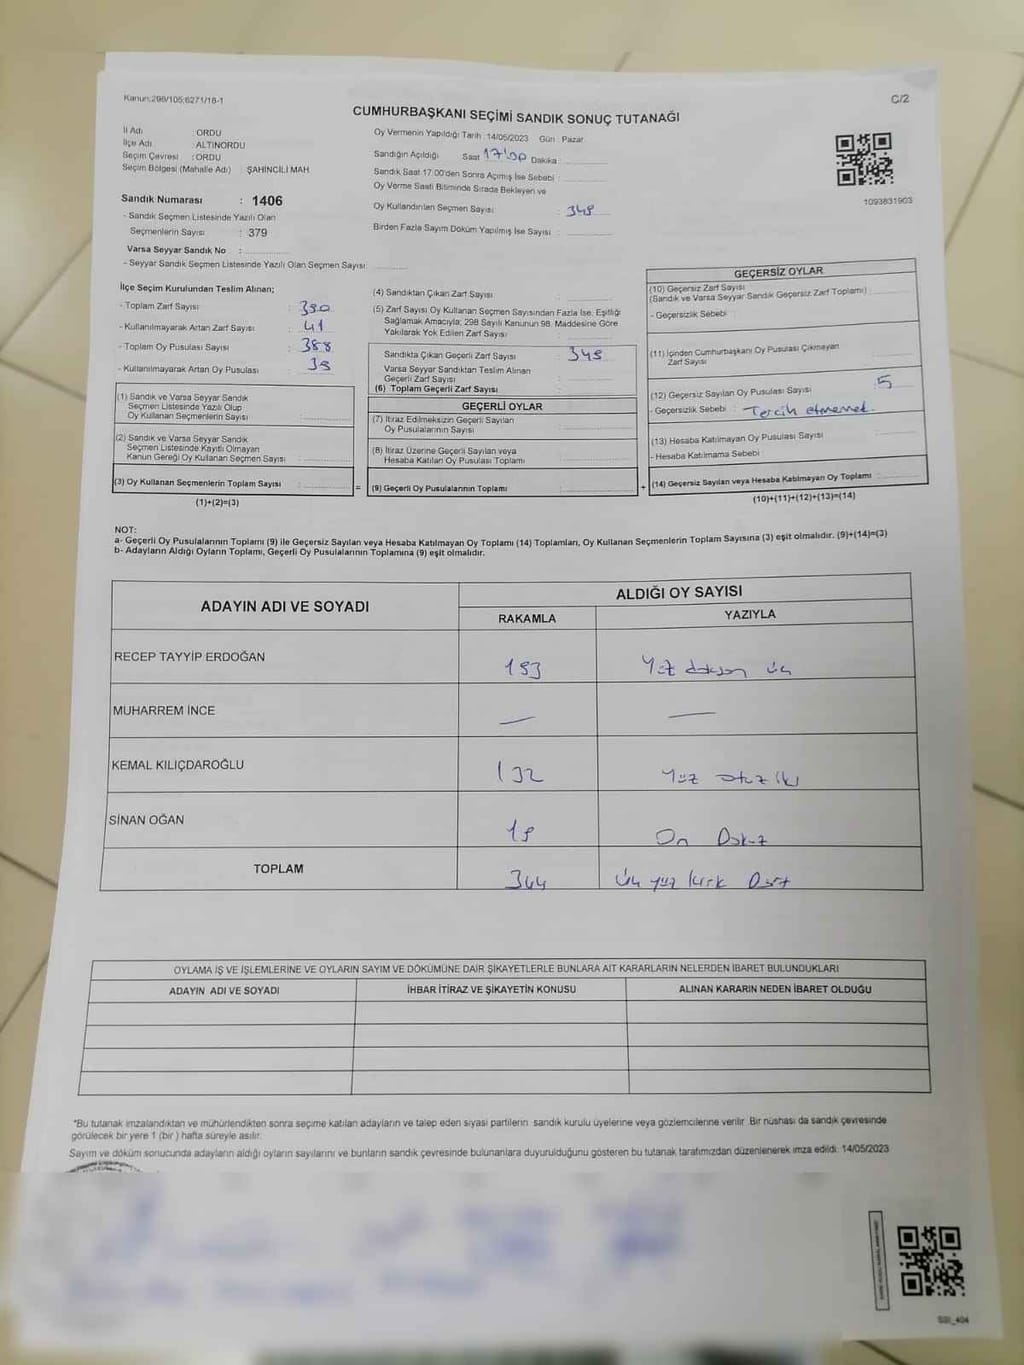 Kanun:298/105;6271/18-1
C/2
CUMHURBAŞKANI SEÇİMİ SANDIK SONUÇ TUTANAĞI
İl Adı : ORDU
İlçe Adı : ALTINORDU
Seçim Çevresi : ORDU
Seçim Bölgesi (Mahalle Adı) : ŞAHİNCİLİ MAH
Sandık Numarası : 1406
- Sandık Seçmen Listesinde Yazılı Olan
Seçmenlerin Sayısı : 379
Varsa Seyyar Sandık No :
- Seyyar Sandık Seçmen Listesinde Yazılı Olan Seçmen Sayısı:
Oy Vermenin Yapıldığı Tarih :14/05/2023 Gün : Pazar
Sandığın Açıldığı Saat 17:00 Dakika
Sandık Saat 17.00'den Sonra Açılmış İse Sebebi :
Oy Verme Saati Bitiminde Sırada Bekleyen ve
Oy Kullandırılan Seçmen Sayısı : 349
Birden Fazla Sayım Döküm Yapılmış İse Sayısı :
1093831903
İlçe Seçim Kurulundan Teslim Alınan;
- Toplam Zarf Sayısı : 390
- Kullanılmayarak Artan Zarf Sayısı : 41
- Toplam Oy Pusulası Sayısı : 388
- Kullanılmayarak Artan Oy Pusulası : 39
(1) Sandık ve Varsa Seyyar Sandık
Seçmen Listesinde Yazılı Olup
Oy Kullanan Seçmenlerin Sayısı :
(2) Sandık ve Varsa Seyyar Sandık
Seçmen Listesinde Kayıtlı Olmayan
Kanun Gereği Oy Kullanan Seçmen Sayısı :
(3) Oy Kullanan Seçmenlerin Toplam Sayısı :
(1)+(2)=(3)
(4) Sandıktan Çıkan Zarf Sayısı :
(5) Zarf Sayısı Oy Kullanan Seçmen Sayısından Fazla İse, Eşitliği
Sağlamak Amacıyla; 298 Sayılı Kanunun 98. Maddesine Göre
Yakılarak Yok Edilen Zarf Sayısı :
Sandıkta Çıkan Geçerli Zarf Sayısı : 349
Varsa Seyyar Sandıktan Teslim Alınan
Geçerli Zarf Sayısı :
(6) Toplam Geçerli Zarf Sayısı :
GEÇERLİ OYLAR
(7) İtiraz Edilmeksizin Geçerli Sayılan
Oy Pusulalarının Sayısı :
(8) İtiraz Üzerine Geçerli Sayılan veya
Hesaba Katılan Oy Pusulası Toplamı :
= (9) Geçerli Oy Pusulalarının Toplamı :
GEÇERSİZ OYLAR
(10) Geçersiz Zarf Sayısı
(Sandık ve Varsa Seyyar Sandık Geçersiz Zarf Toplamı) :
- Geçersizlik Sebebi :
(11) İçinden Cumhurbaşkanı Oy Pusulası Çıkmayan
Zarf Sayısı :
(12) Geçersiz Sayılan Oy Pusulası Sayısı : 5
- Geçersizlik Sebebi : Tercih etmemek.
(13) Hesaba Katılmayan Oy Pusulası Sayısı :
- Hesaba Katılmama Sebebi :
+ (14) Geçersiz Sayılan veya Hesaba Katılmayan Oy Toplamı :
(10)+(11)+(12)+(13)=(14)
NOT:
a- Geçerli Oy Pusulalarının Toplamı (9) ile Geçersiz Sayılan veya Hesaba Katılmayan Oy Toplamı (14) Toplamları, Oy Kullanan Seçmenlerin Toplam Sayısına (3) eşit olmalıdır. (9)+(14)=(3)
b- Adayların Aldığı Oyların Toplamı, Geçerli Oy Pusulalarının Toplamına (9) eşit olmalıdır.
ADAYIN ADI VE SOYADI
ALDIĞI OY SAYISI
RAKAMLA YAZIYLA
RECEP TAYYİP ERDOĞAN 193 Yüz doksan üç
MUHARREM İNCE — —
KEMAL KILIÇDAROĞLU 132 Yüz otuz iki
SİNAN OĞAN 19 On Dokuz
TOPLAM 344 Üç yüz kırk Dört
OYLAMA İŞ VE İŞLEMLERİNE VE OYLARIN SAYIM VE DÖKÜMÜNE DAİR ŞİKAYETLERLE BUNLARA AİT KARARLARIN NELERDEN İBARET BULUNDUKLARI
ADAYIN ADI VE SOYADI İHBAR İTİRAZ VE ŞİKAYETİN KONUSU ALINAN KARARIN NEDEN İBARET OLDUĞU
*Bu tutanak imzalandıktan ve mühürlendikten sonra seçime katılan adayların ve talep eden siyasi partilerin sandık kurulu üyelerine veya gözlemcilerine verilir. Bir nüshası da sandık çevresinde
görülecek bir yere 1 (bir) hafta süreyle asılır.
Sayım ve döküm sonucunda adayların aldığı oyların sayılarını ve bunların sandık çevresinde bulunanlara duyurulduğunu gösteren bu tutanak tarafımızdan düzenlenerek imza edildi. 14/05/2023
SSI_404